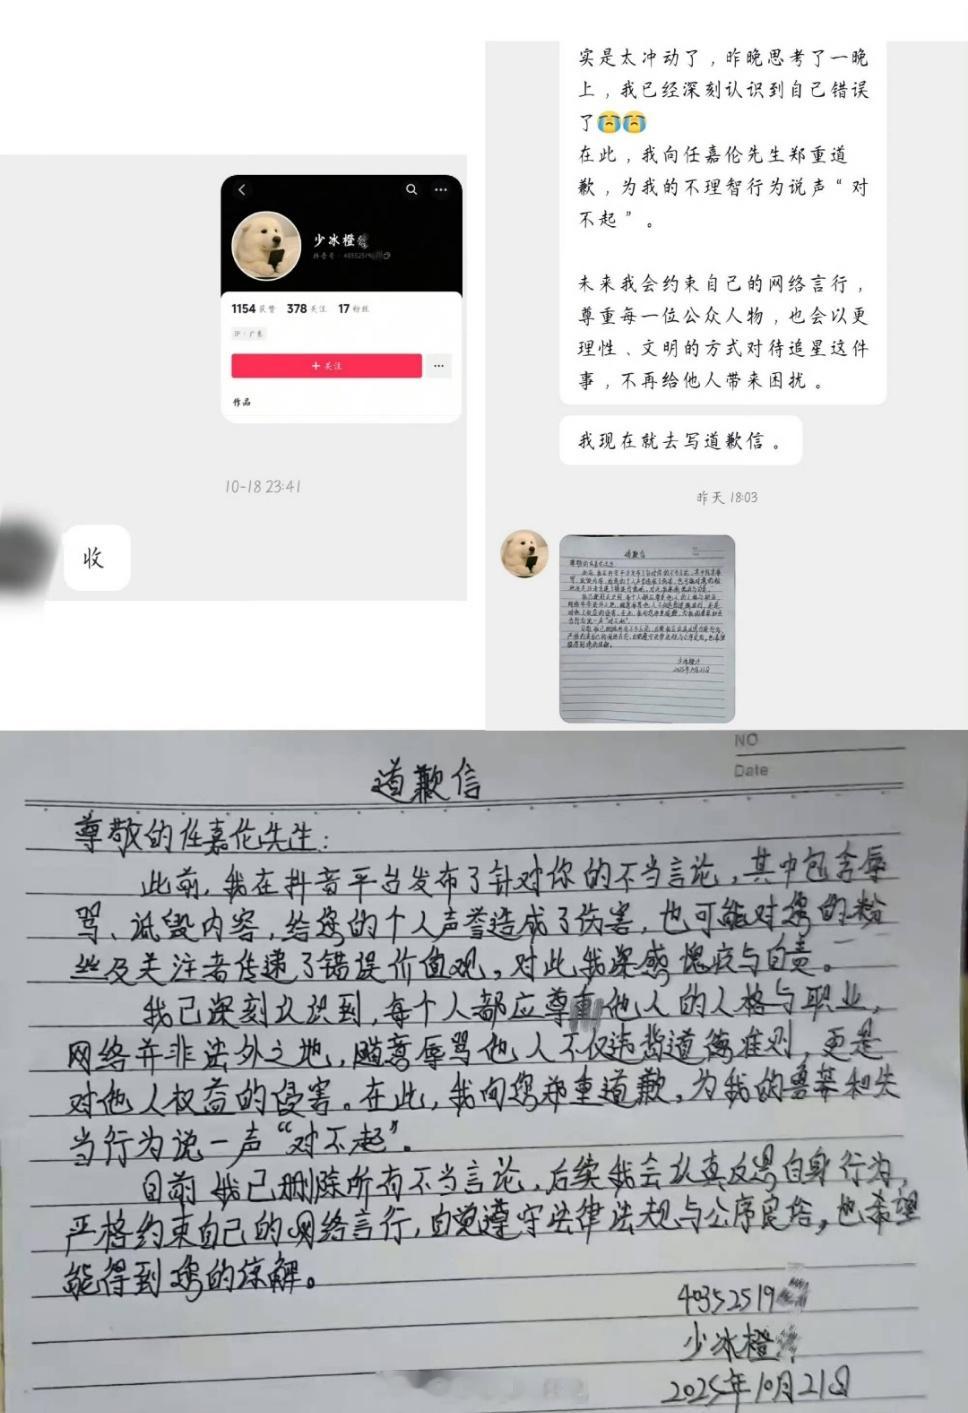 少冰橙
抖音号：40352519
1154 获赞 378 关注 17 粉丝
IP：广东
+ 关注
作品
10-18 23:41
收
实是太冲动了，昨晚思考了一晚
上，我已经深刻认识到自己错误
了😭😭
在此，我向任嘉伦先生郑重道
歉，为我的不理智行为说声“对
不起”。
未来我会约束自己的网络言行，
尊重每一位公众人物，也会以更
理性、文明的方式对待追星这件
事，不再给他人带来困扰。
我现在就去写道歉信。
昨天 18:03
NO
Date
道歉信
尊敬的任嘉伦先生：
此前，我在抖音平台发布了针对你的不当言论，其中包含辱
骂、诋毁内容，给您的个人声誉造成了伤害，也可能对您的粉
丝及关注者传递了错误价值观。对此我深感愧疚与自责。
我已深刻认识到，每个人都应尊重他人的人格与职业，
网络并非法外之地，随意辱骂他人不仅违背道德准则，更是
对他人权益的侵害。在此，我向您郑重道歉，为我的鲁莽和失
当行为说一声“对不起”。
目前我已删除所有不当言论，后续我会认真反思自身行为，
严格约束自己的网络言行，自觉遵守法律法规与公序良俗。也希望
能得到您的谅解。
40352519
少冰橙
2025年10月21日